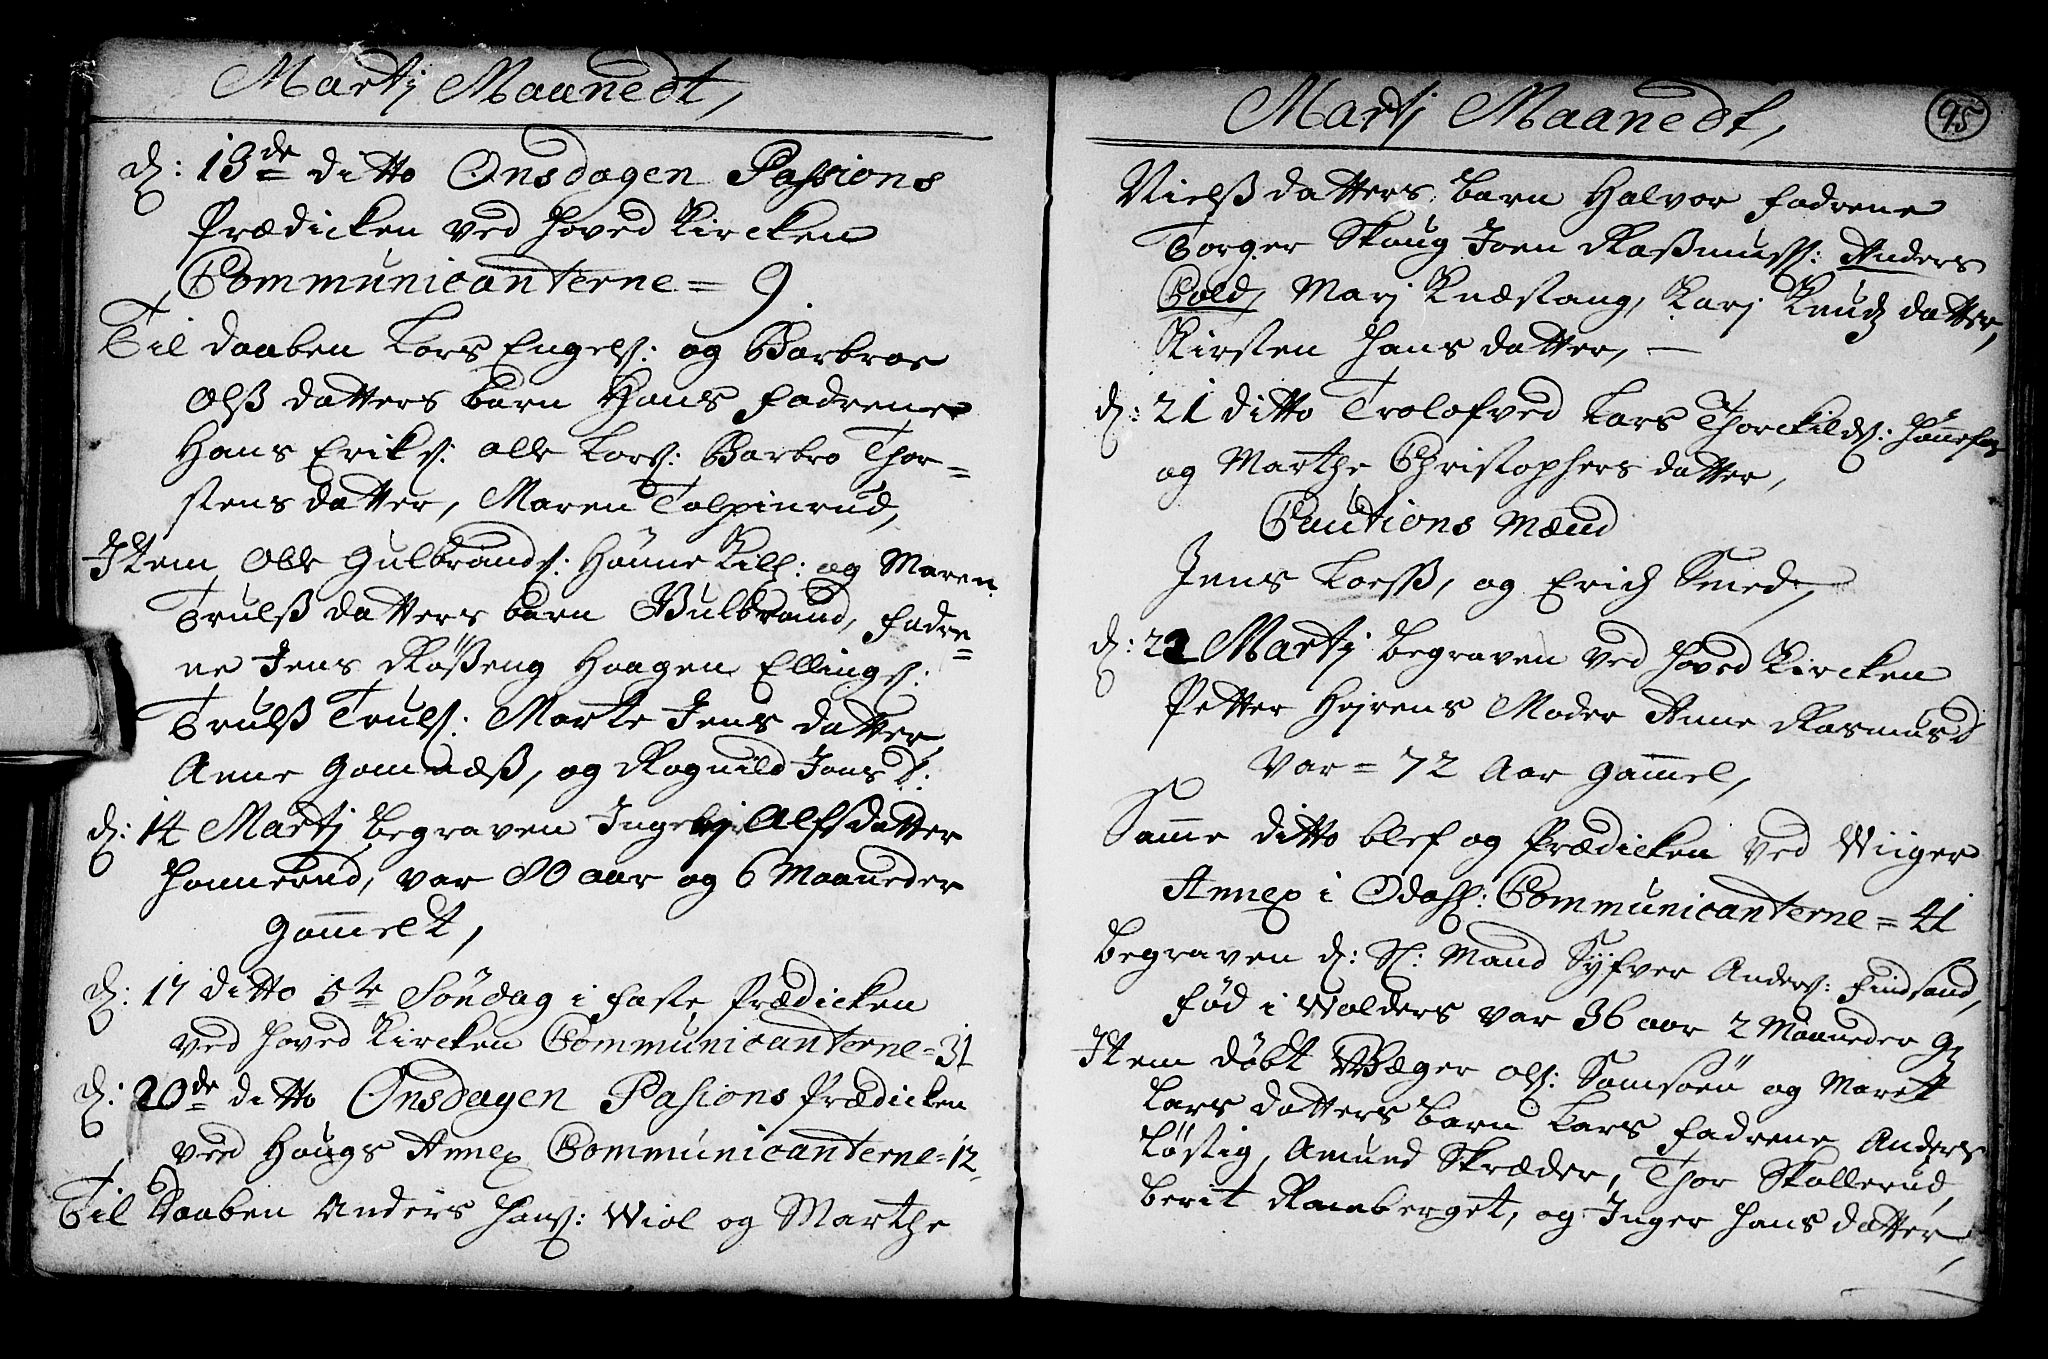 Martj Maanedt,
d: 13de ditto Onsdagen Passions
Prædicken ved Hoved Kircken
Communicanterne = 9.
Til daaben Lars Engels: og Barbroe
Olß datters barn Hans fadrene
Hans Eriks: Olle Lars: Barbro Thor=
stens datter, Maren Tolpinrud,
Jtem Olle Gulbrands: Hönne Kill: og Maren
Trulß datters barn Gulbrand, fadre=
ne Jens Rößeng Haagen Ellings:
Trulß Truls: Marte Jens datter
Anne Gomnæß, og Rognild Jans d:
d: 14 Martj begraven Ingebor Alfsdatter
Honnerud, var 80 aar og 6 Maaneder
Gammelt,
d: 17 ditto 5te Söndag i faste Prædicken
ved Hoved Kircken Communicanterne = 31
d: 20de ditto Onsdagen Pasions Prædicken
ved Hougs Annex Communicanterne = 12
Til Daaben Anders Hans: Wiol og Marthe
Martj Maanedt,
95
Nielß datters barn Halvor fadrene
Torger Skoug Joen Raßmuss: Anders
Cold, Marj Knæstang, Karj Knudz datter,
Kirsten Hans datter, —
d: 21 ditto Trolofved Lars Thorckilds:
og Marthe Christophers datter,
Cautions Mænd
Jens Loeß, og Erich Smed,
d: 22 Martj begraven ved Hoved Kircken
Petter Hejrens Moder Anne Rasmusd
var = 72 Aar gammel,
Samme ditto blef og Prædicken ved Wiiger
Annex i Odahl: Communicanterne = 41
begraven d: Sl: Mand Syfver Anders: Findsand,
fød i Wolders var 36 aar 2 Maaneder
Jtem døbt Væger Ols: Samsoen og Marett
Lars datters barn Lars fadrene Anders
Løstig, Amund Skræder, Thor Skollerud,
berit Ramberget, og Inger Hans datter,